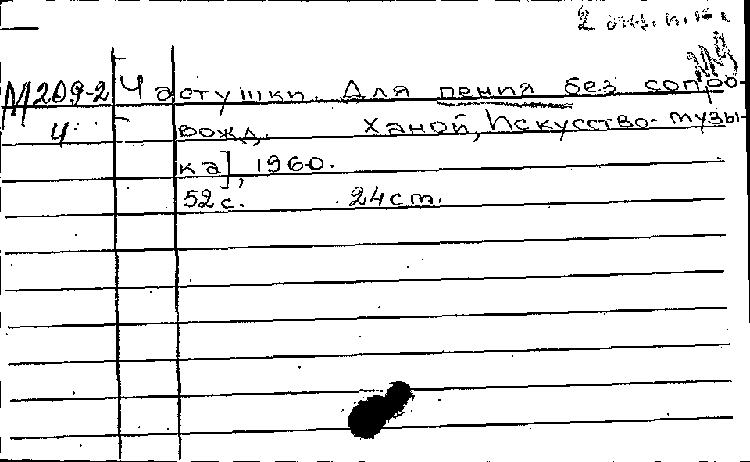 М209-2 Частушки. Для пения без сопро-
Ч вожд. Ханой, Искусство-музы-
ка], 1960.
52с. 24ст.